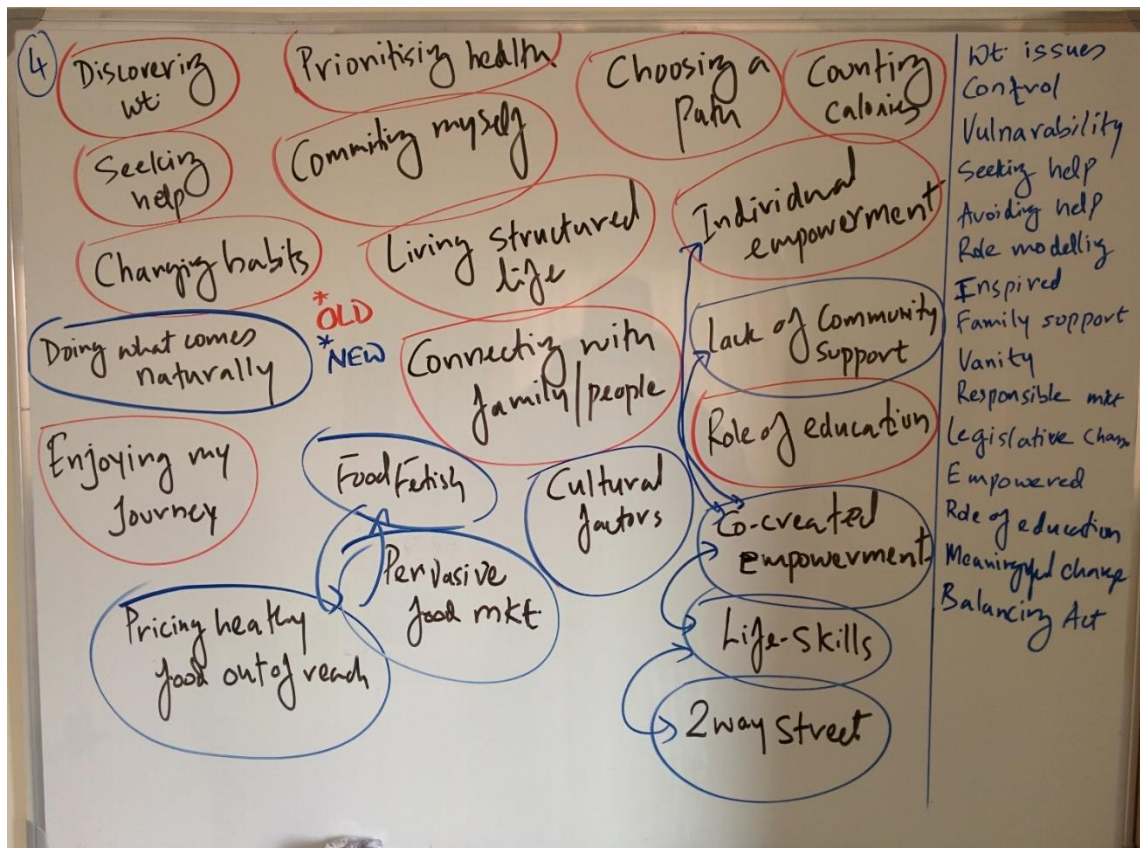 4
Discovering
wt.
Prioritising health
Choosing a
Path
Counting
calories
Seeking
help
Commiting myself
Individual
empowerment
Changing habits
Living structured
life
*OLD
*NEW
Doing what comes
naturally
Connecting with
family/people
Lack of Community
support
Enjoying my
Journey
Food Fetish
Cultural
factors
Role of education
Co-created
Empowerment
Pervasive
food mkt
Pricing heathy
food out of reach
Life-Skills
2 way Street
Wt. issues
Control
Vulnarability
Seeking help
Avoiding help
Role modelling
Inspired
Family support
Vanity
Responsible mkt
Legislative
Empowered
Role of education
Meaningful change
Balancing Act